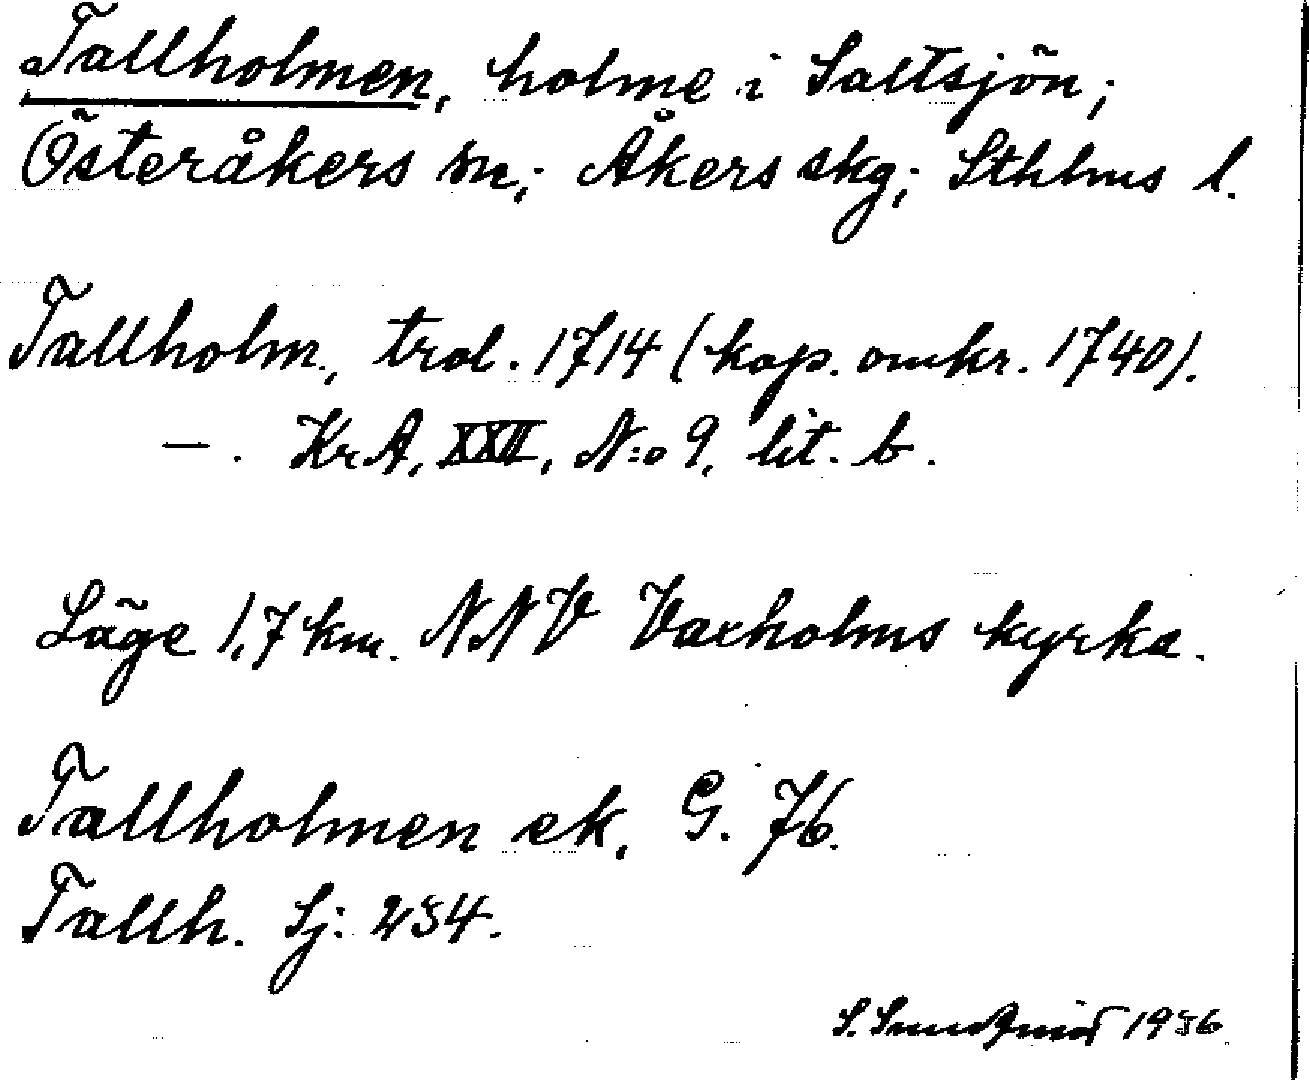 Tallholmen, holme i Saltsjön;
Österåkers sn; Åkers skg; Sthlms l.
Tallholm., trol. 1714 (kop. omkr. 1740).
— . KrA, XXII, N:o 9, lit. b.
Läge 1,7 km. NNV Vaxholms kyrka.
Tallholmen ek. G. 76.
Tallh. Sj: 254.
S. 1936